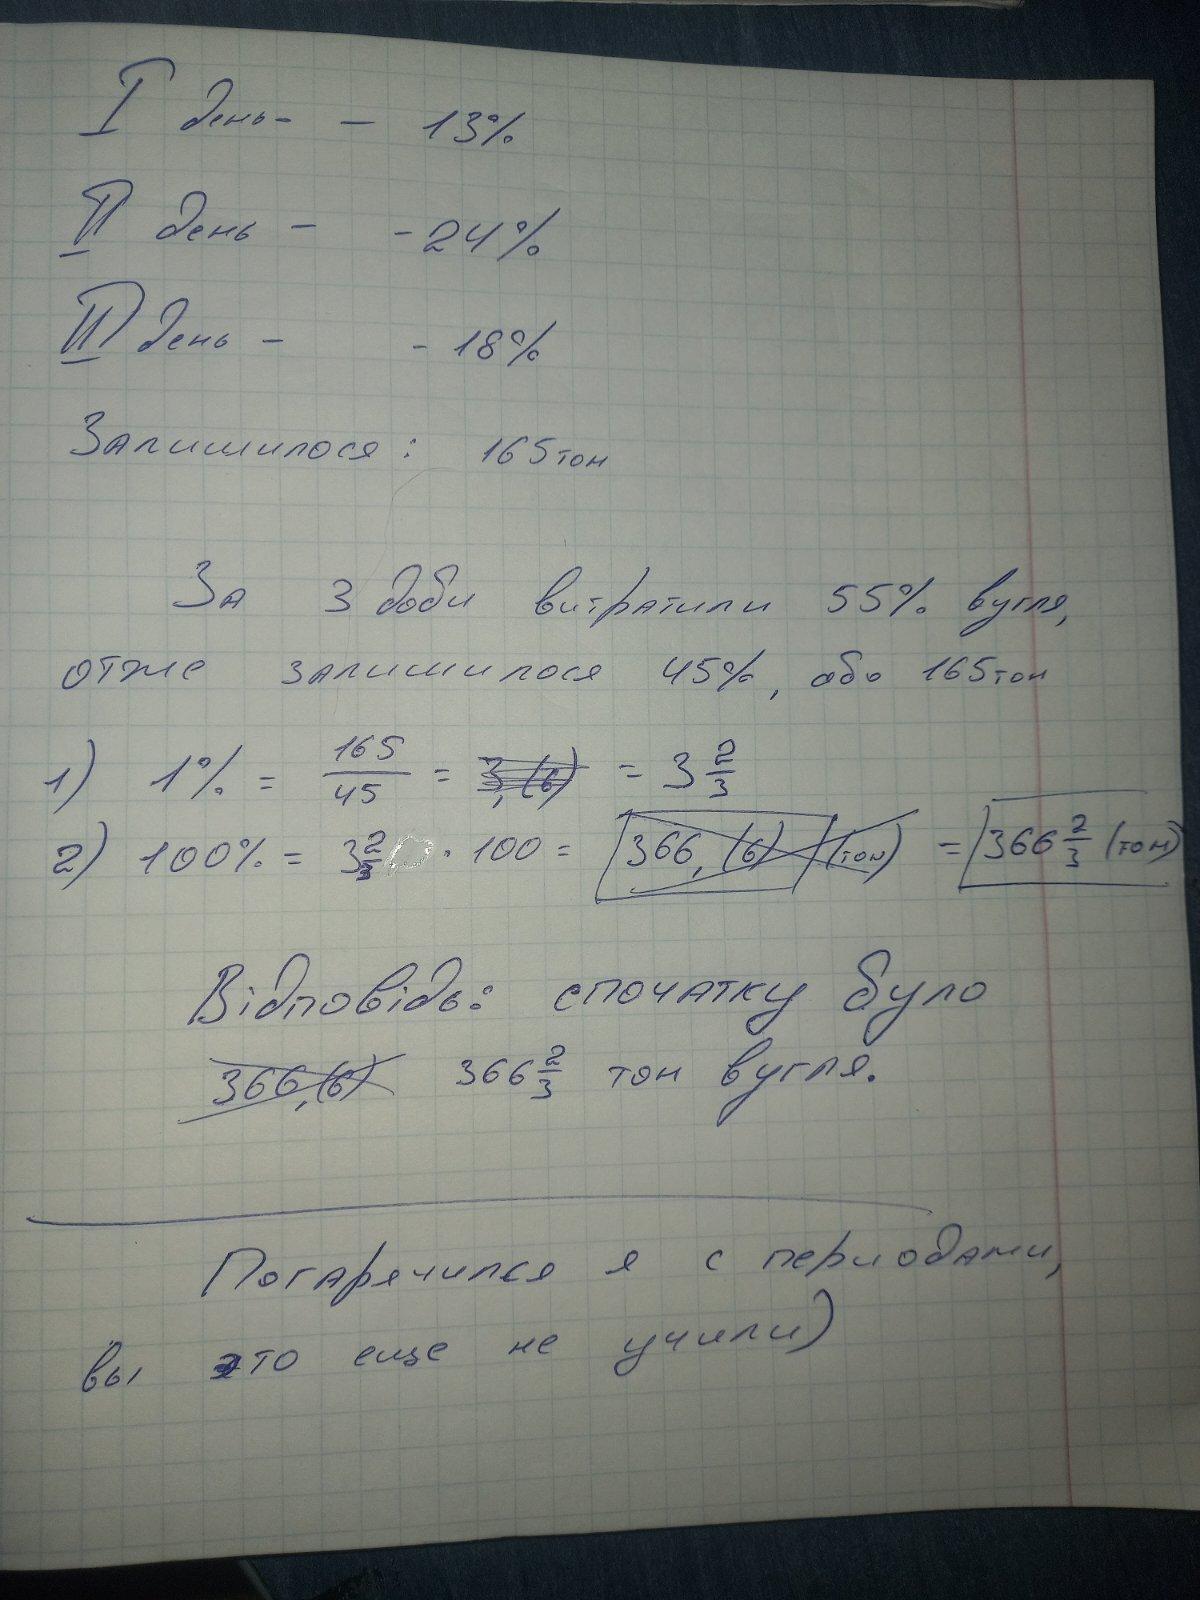 I день- - 13%
II день - - 24%
III день - - 18%
Залишилося: 165 тон
За 3 доби витратили 55% вугля,
отже залишилося 45%, або 165 тон
1) 1% = 165/45 = 3,(6) = 3 2/3
2) 100% = 3 2/3 · 100 = 366,(6) (тон) = 366 2/3 (тон)
Відповідь: спочатку було
366,(6) 366 2/3 тон вугля.
Погарячился я с периодами,
вы это еще не учили)